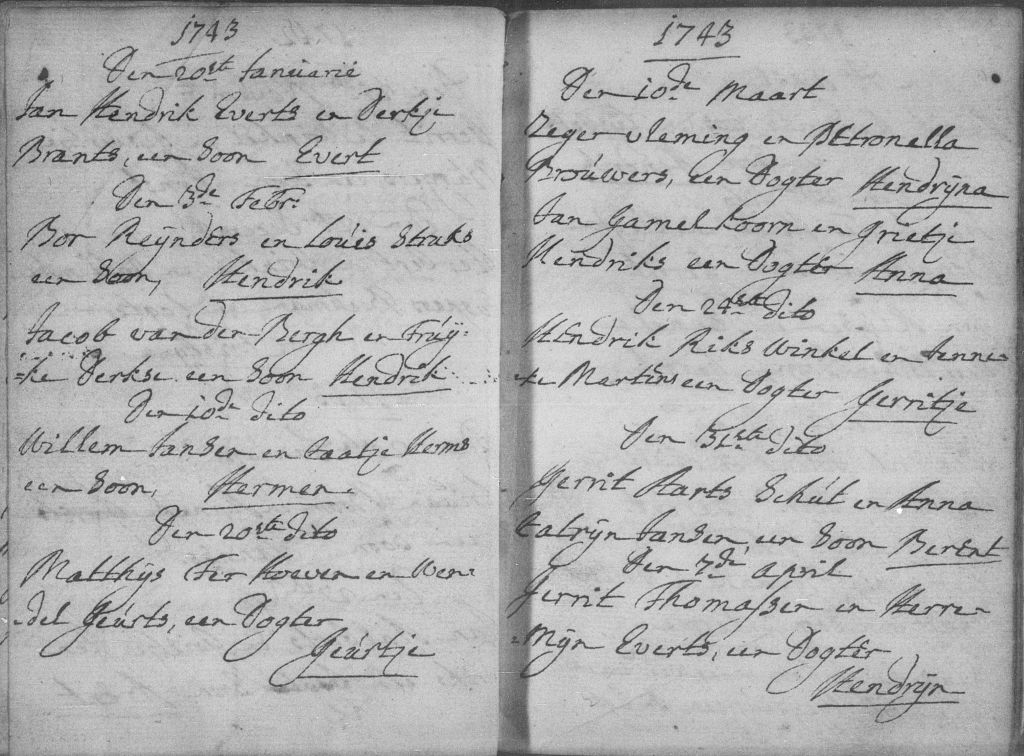 1743
Den 20ste Januarie
Jan Hendrik Everts en Derkje
Brants, een Soon Evert
Den 3de Febr:
Bor Reÿnders en Louis Straks
een Soon, Hendrik
Jacob van der Bergh en Fruÿ=
=ke Derkse een Soon Hendrik
Den 10de dito
Willem Jansen en Taatje Herms
een Soon, Hermen.
Den 20ste dito
Matthÿs Ter Hoeven en Wen=
=del Geurts, een Dogter
Geurtje
1743
Den 10de Maart
Zeger Vleming en Petronella
Brouwers, een Dogter Hendrÿna
Jan Gamelkoorn en Grietje
Hendriks een Dogter Anna
Den 24ste dito
Hendrik Riks Winkel en Jenne=
=ke Martens een Dogter Gerritje
Den 31ste dito
Gerrit Aarts Schut en Anna
Catrÿn Jansen een Soon Berent
Den 7de april
Gerrit Thomassen en Herre=
=mÿn Everts, een Dogter
Hendrÿn